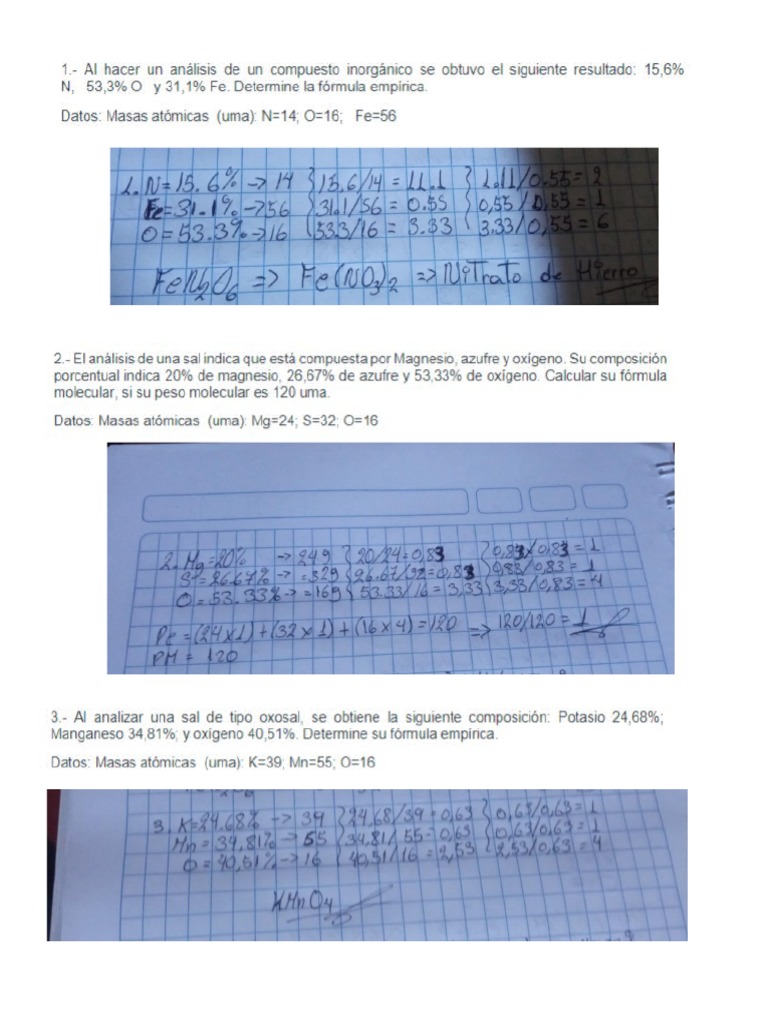 1.- Al hacer un análisis de un compuesto inorgánico se obtuvo el siguiente resultado: 15,6%
N, 53,3% O y 31,1% Fe. Determine la fórmula empírica.
Datos: Masas atómicas (uma): N=14; O=16; Fe=56
1. N=15.6% -> 14 } 15.6/14 = 11.1 } 1.11/0.55 = 2
Fe=31.1% -> 56 } 31.1/56 = 0.55 } 0,55/0,55 = 1
O = 53.3% -> 16 } 533/16 = 3.33 } 3.33/0,55 = 6
FeN2O6 => Fe(NO3)2 => Nitrato de Hierro
2.- El análisis de una sal indica que está compuesta por Magnesio, azufre y oxígeno. Su composición
porcentual indica 20% de magnesio, 26,67% de azufre y 53,33% de oxígeno. Calcular su fórmula
molecular, si su peso molecular es 120 uma.
Datos: Masas atómicas (uma): Mg=24; S=32; O=16
2. Mg=20% -> 24g { 20/24=0,83 { 0,83/0,83 = 1
S=26.67% -> =32g { 26.67/32=0,83 { 0,83/0,83 = 1
O = 53.33% -> =16g { 53.33/16 = 3,33 { 3,33/0,83 = 4
Pe = (24x1)+(32x1)+(16x4)=120 => 120/120 = 1
PM = 120
3.- Al analizar una sal de tipo oxosal, se obtiene la siguiente composición: Potasio 24,68%;
Manganeso 34,81%; y oxígeno 40,51%. Determine su fórmula empírica.
Datos: Masas atómicas (uma): K=39; Mn=55; O=16
3. K=24.68% -> 39 { 24,68/39 = 0,63 { 0,63/0,63 = 1
Mn = 34,81% -> 55 { 34,81/55 = 0,63 { 0,63/0,63 = 1
O = 40,51% -> 16 { 40,51/16 = 2,53 { 2,53/0,63 = 4
KMnO4